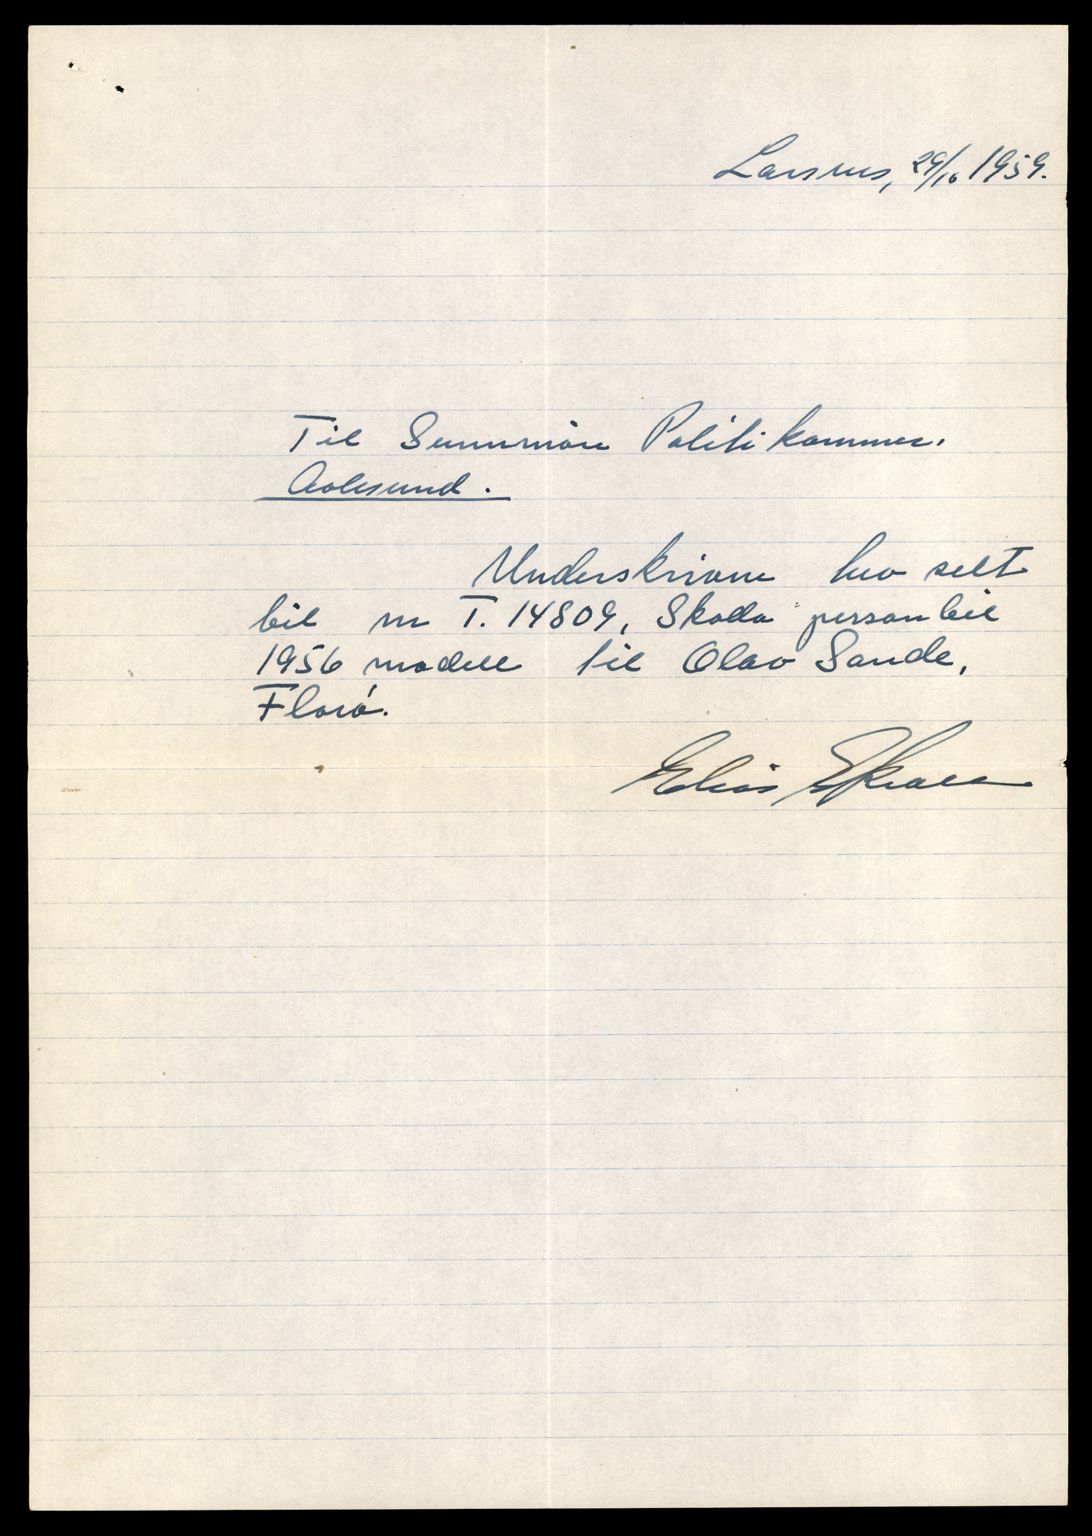 Larsnes, 29/10 1959.
Til Sunnmöre Politikammer.
Aalesund.
Underskrivne hev selt
bil nr T. 14809, Skoda personbil
1956 modell til Olav Sande,
Florö.
Elias